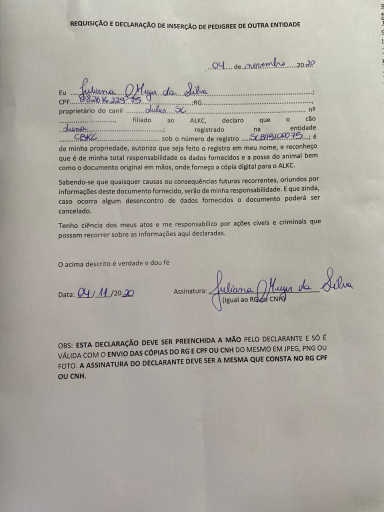 REQUISIÇÃO E DECLARAÇÃO DE INSERÇÃO DE PEDIGREE DE OUTRA ENTIDADE
04 de novembro 2020
Eu Juliana da Silva
CPF RG
proprietário do canil nº
filiado ao ALKC, declaro que o cão
registrado na entidade
CBKC sob o número de registro ; é
de minha propriedade, autorizo que seja feito o registro em meu nome, e reconheço
que é de minha total responsabilidade os dados fornecidos e a posse do animal bem
como o documento original em mãos, onde forneço a cópia digital para o ALKC.
Sabendo-se que quaisquer causas ou consequências futuras recorrentes, oriundos por
informações deste documento fornecido, serão de minha responsabilidade. E que ainda,
caso ocorra algum desencontro de dados fornecidos o documento poderá ser
cancelado.
Tenho ciência dos meus atos e me responsabilizo por ações cíveis e criminais que
possam recorrer sobre as informações aqui declaradas.
O acima descrito é verdade e dou fé
Data: 04/11/2020 Assinatura: Juliana da Silva
(Igual ao RG ou CNH)
OBS: ESTA DECLARAÇÃO DEVE SER PREENCHIDA A MÃO PELO DECLARANTE E SÓ É
VÁLIDA COM O ENVIO DAS CÓPIAS DO RG E CPF OU CNH DO MESMO EM JPEG, PNG OU
FOTO. A ASSINATURA DO DECLARANTE DEVE SER A MESMA QUE CONSTA NO RG CPF
OU CNH.